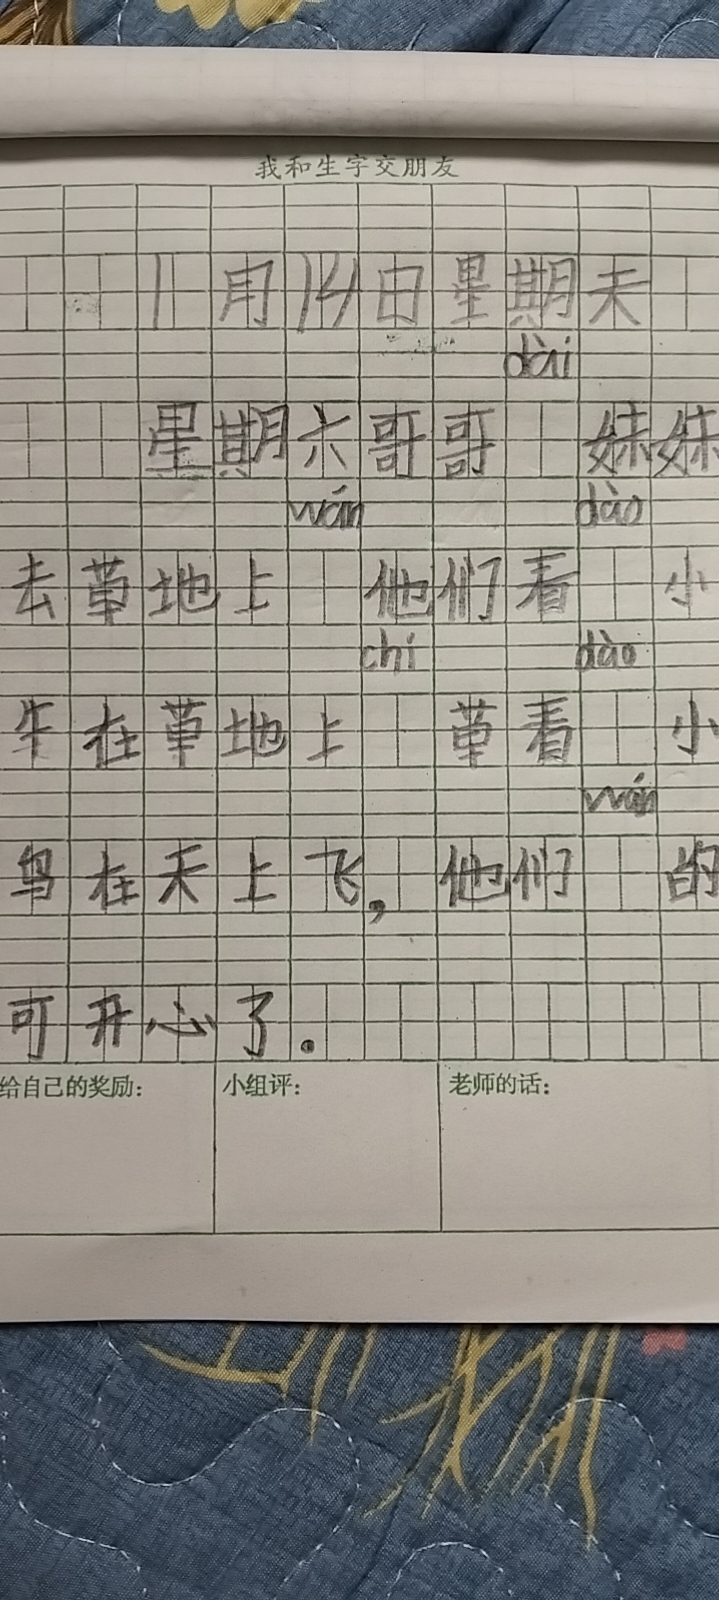 我和生字交朋友
1月14日星期天
dài
星期六哥哥 妹妹
wán dào
去草地上 他们看 小
chí dào
牛在草地上 草看 小
wán
鸟在天上飞，他们 的
可开心了。
给自己的奖励： 小组评： 老师的话：